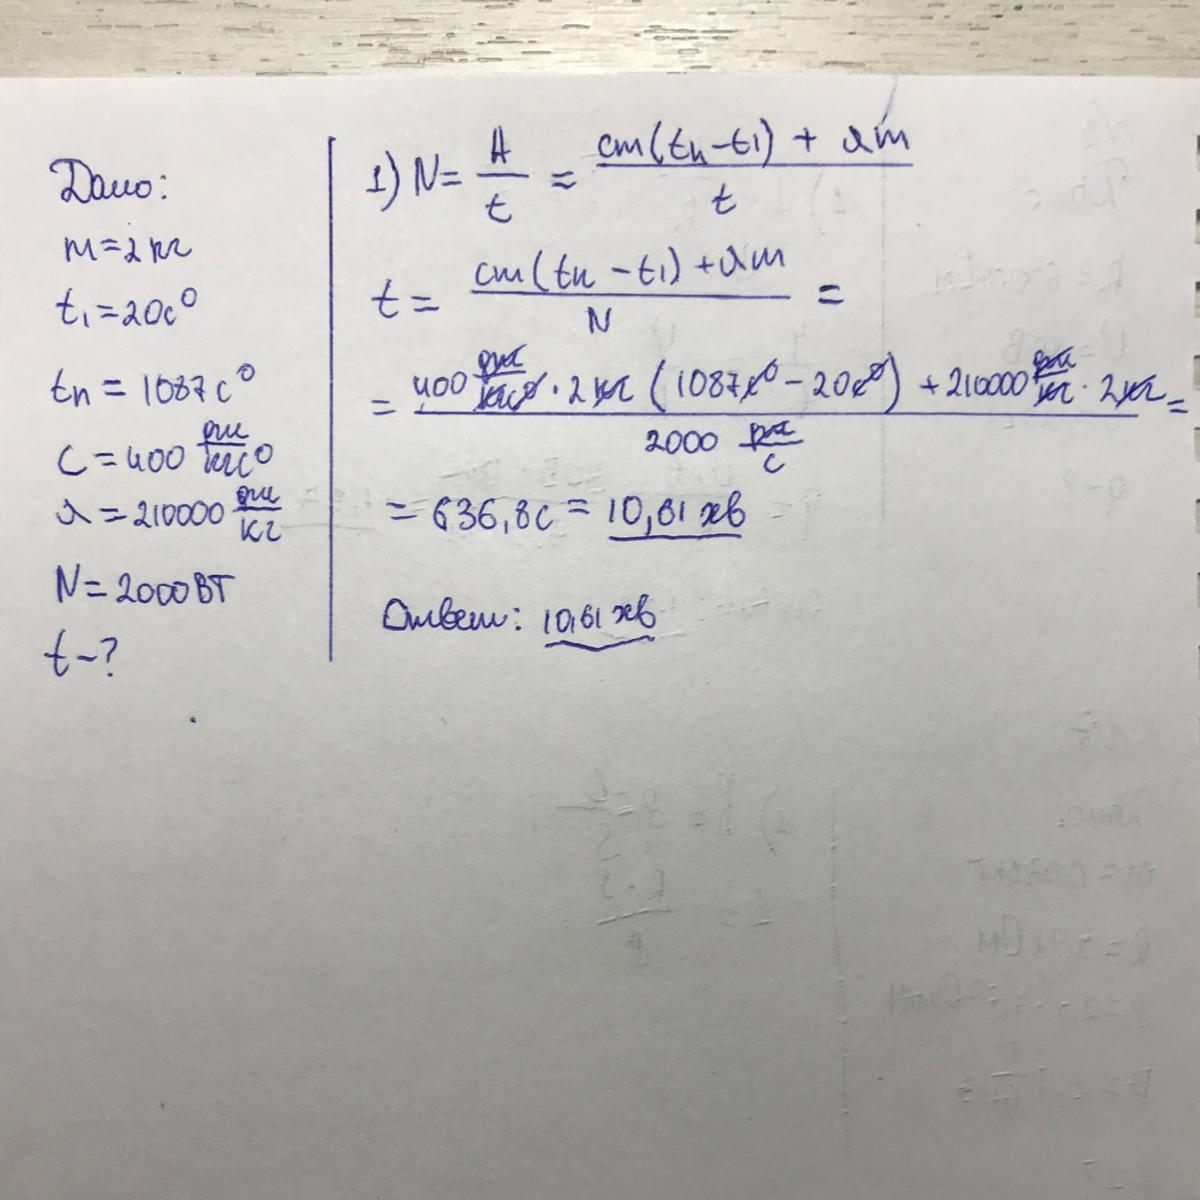 Дано:
m=2кг
t₁=20c⁰
tп=1087c⁰
c=400 дж/кгc⁰
λ=210000 дж/кг
N=2000Вт
t-?
1) N= A/t = cm(tп-t₁) + λm / t
t= cm(tп-t₁)+λm / N =
= 400 дж/кгc⁰ · 2кг (1087c⁰ - 20c⁰) + 210000 дж/кг · 2кг / 2000 дж/c =
= 636,8c = 10,61 хв
Ответ: 10,61 хв